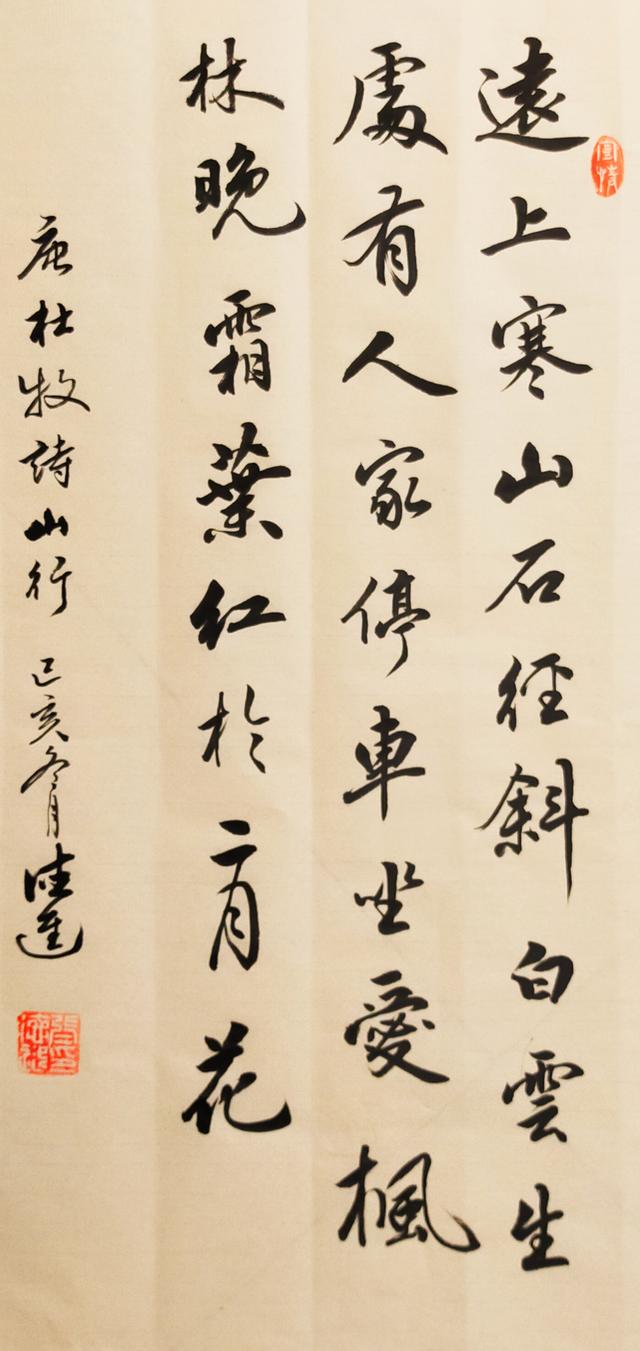 遠上寒山石徑斜白雲生
處有人家停車坐愛楓
林晚霜葉紅於二月花
唐杜牧詩山行己亥冬月